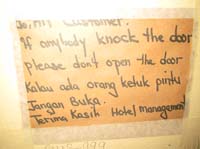 To, All Customer.
If anybody knock the door
please don't open the door
Kalau ada orang ketuk pintu
Jangan Buka.
Terima Kasih Hotel management